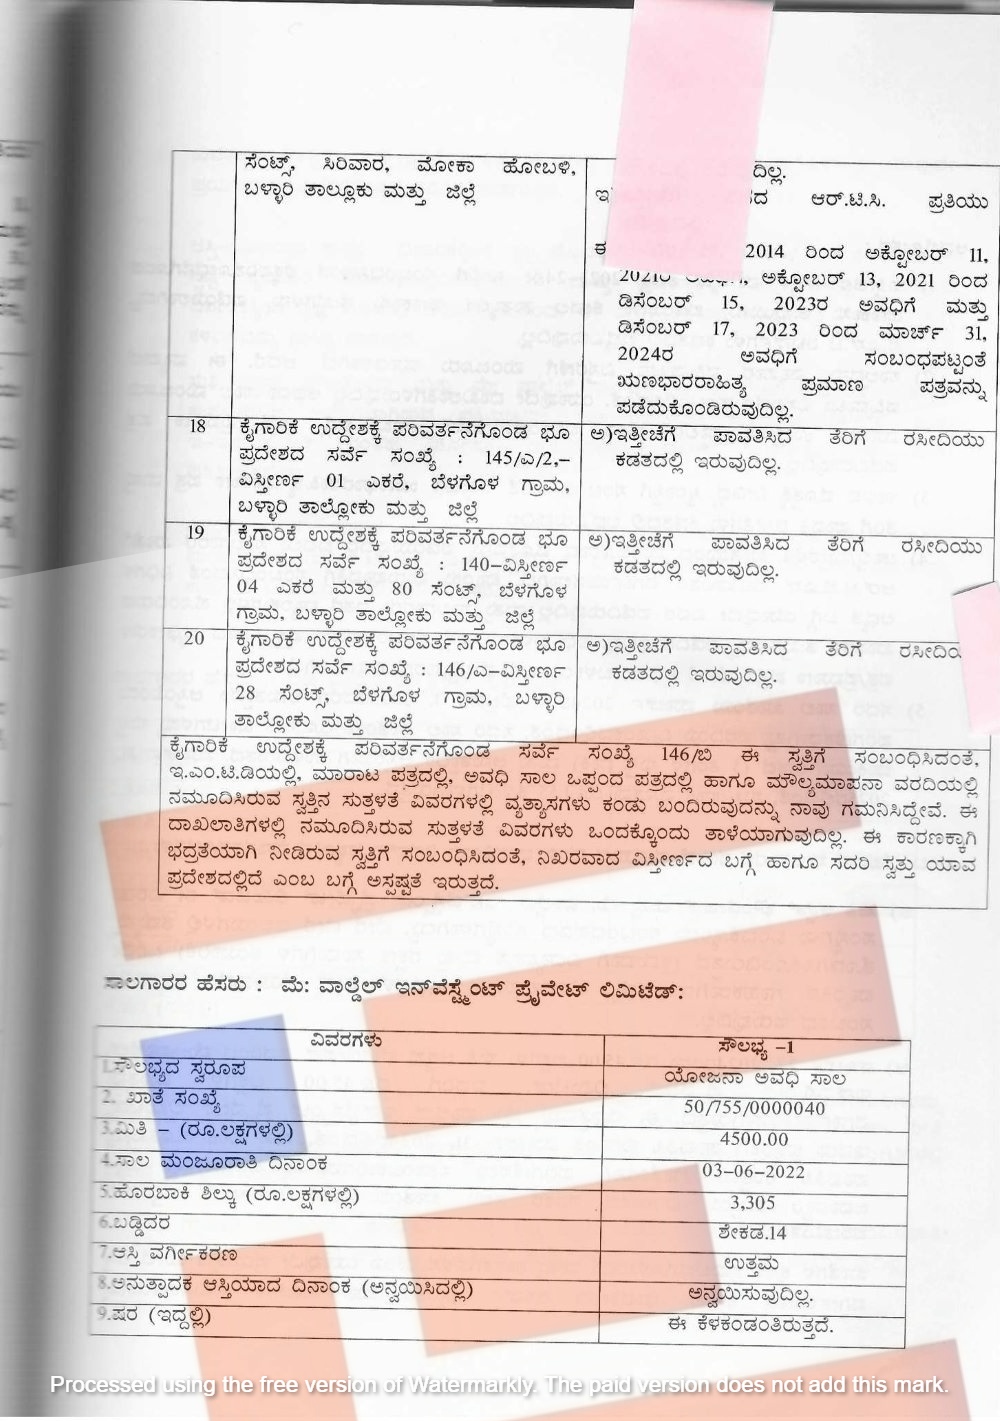 ಸೆಂಟ್ಸ್, ಸಿರಿವಾರ, ಮೋಕಾ ಹೋಬಳಿ,
ಬಳ್ಳಾರಿ ತಾಲ್ಲೂಕು ಮತ್ತು ಜಿಲ್ಲೆ
ದಿಲ್ಲ.
ಆರ್.ಟಿ.ಸಿ. ಪ್ರತಿಯು
2014 ರಿಂದ ಅಕ್ಟೋಬರ್ 11,
ಅಕ್ಟೋಬರ್ 13, 2021 ರಿಂದ
ಡಿಸೆಂಬರ್ 15, 2023ರ ಅವಧಿಗೆ ಮತ್ತು
ಡಿಸೆಂಬರ್ 17, 2023 ರಿಂದ ಮಾರ್ಚ್ 31,
2024ರ ಅವಧಿಗೆ ಸಂಬಂಧಪಟ್ಟಂತೆ
ಋಣಭಾರರಾಹಿತ್ಯ ಪ್ರಮಾಣ ಪತ್ರವನ್ನು
ಪಡೆದುಕೊಂಡಿರುವುದಿಲ್ಲ.
18
ಕೈಗಾರಿಕೆ ಉದ್ದೇಶಕ್ಕೆ ಪರಿವರ್ತನೆಗೊಂಡ ಭೂ
ಪ್ರದೇಶದ ಸರ್ವೆ ಸಂಖ್ಯೆ : 145/ಎ/2,–
ವಿಸ್ತೀರ್ಣ 01 ಎಕರೆ, ಬೆಳಗೊಳ ಗ್ರಾಮ,
ಬಳ್ಳಾರಿ ತಾಲ್ಲೋಕು ಮತ್ತು ಜಿಲ್ಲೆ
ಅ)ಇತ್ತೀಚೆಗೆ ಪಾವತಿಸಿದ ತೆರಿಗೆ ರಸೀದಿಯು
ಕಡತದಲ್ಲಿ ಇರುವುದಿಲ್ಲ.
19
ಕೈಗಾರಿಕೆ ಉದ್ದೇಶಕ್ಕೆ ಪರಿವರ್ತನೆಗೊಂಡ ಭೂ
ಪ್ರದೇಶದ ಸರ್ವೆ ಸಂಖ್ಯೆ : 140–ವಿಸ್ತೀರ್ಣ
04 ಎಕರೆ ಮತ್ತು 80 ಸೆಂಟ್ಸ್, ಬೆಳಗೊಳ
ಗ್ರಾಮ, ಬಳ್ಳಾರಿ ತಾಲ್ಲೋಕು ಮತ್ತು ಜಿಲ್ಲೆ
ಅ)ಇತ್ತೀಚೆಗೆ ಪಾವತಿಸಿದ ತೆರಿಗೆ ರಸೀದಿಯು
ಕಡತದಲ್ಲಿ ಇರುವುದಿಲ್ಲ.
20
ಕೈಗಾರಿಕೆ ಉದ್ದೇಶಕ್ಕೆ ಪರಿವರ್ತನೆಗೊಂಡ ಭೂ
ಪ್ರದೇಶದ ಸರ್ವೆ ಸಂಖ್ಯೆ : 146/ಎ–ವಿಸ್ತೀರ್ಣ
28 ಸೆಂಟ್ಸ್, ಬೆಳಗೊಳ ಗ್ರಾಮ, ಬಳ್ಳಾರಿ
ತಾಲ್ಲೋಕು ಮತ್ತು ಜಿಲ್ಲೆ
ಅ)ಇತ್ತೀಚೆಗೆ ಪಾವತಿಸಿದ ತೆರಿಗೆ
ಕಡತದಲ್ಲಿ ಇರುವುದಿಲ್ಲ.
ಕೈಗಾರಿಕೆ ಉದ್ದೇಶಕ್ಕೆ ಪರಿವರ್ತನೆಗೊಂಡ ಸರ್ವೆ ಸಂಖ್ಯೆ 146/ಬಿ ಈ ಸ್ವತ್ತಿಗೆ ಸಂಬಂಧಿಸಿದಂತೆ,
ಇ.ಎಂ.ಟಿ.ಡಿಯಲ್ಲಿ, ಮಾರಾಟ ಪತ್ರದಲ್ಲಿ, ಅವಧಿ ಸಾಲ ಒಪ್ಪಂದ ಪತ್ರದಲ್ಲಿ ಹಾಗೂ ಮೌಲ್ಯಮಾಪನಾ ವರದಿಯಲ್ಲಿ
ನಮೂದಿಸಿರುವ ಸ್ವತ್ತಿನ ಸುತ್ತಳತೆ ವಿವರಗಳಲ್ಲಿ ವ್ಯತ್ಯಾಸಗಳು ಕಂಡು ಬಂದಿರುವುದನ್ನು ನಾವು ಗಮನಿಸಿದ್ದೇವೆ. ಈ
ದಾಖಲಾತಿಗಳಲ್ಲಿ ನಮೂದಿಸಿರುವ ಸುತ್ತಳತೆ ವಿವರಗಳು ಒಂದಕ್ಕೊಂದು ತಾಳೆಯಾಗುವುದಿಲ್ಲ. ಈ ಕಾರಣಕ್ಕಾಗಿ
ಭದ್ರತೆಯಾಗಿ ನೀಡಿರುವ ಸ್ವತ್ತಿಗೆ ಸಂಬಂಧಿಸಿದಂತೆ, ನಿಖರವಾದ ವಿಸ್ತೀರ್ಣದ ಬಗ್ಗೆ ಹಾಗೂ ಸದರಿ ಸ್ವತ್ತು ಯಾವ
ಪ್ರದೇಶದಲ್ಲಿದೆ ಎಂಬ ಬಗ್ಗೆ ಅಸ್ಪಷ್ಟತೆ ಇರುತ್ತದೆ.
ಸಾಲಗಾರರ ಹೆಸರು : ಮೆ: ವಾಲ್ಡೆಲ್ ಇನ್‌ವೆಸ್ಟ್ಮೆಂಟ್ ಪ್ರೈವೇಟ್ ಲಿಮಿಟೆಡ್:
ವಿವರಗಳು ಸೌಲಭ್ಯ –1
1.ಸೌಲಭ್ಯದ ಸ್ವರೂಪ ಯೋಜನಾ ಅವಧಿ ಸಾಲ
2. ಖಾತೆ ಸಂಖ್ಯೆ 50/755/0000040
3.ಮಿತಿ – (ರೂ.ಲಕ್ಷಗಳಲ್ಲಿ) 4500.00
4.ಸಾಲ ಮಂಜೂರಾತಿ ದಿನಾಂಕ 03–06–2022
5.ಹೊರಬಾಕಿ ಶಿಲ್ಕು (ರೂ.ಲಕ್ಷಗಳಲ್ಲಿ) 3,305
6.ಬಡ್ಡಿದರ ಶೇಕಡ.14
7.ಆಸ್ತಿ ವರ್ಗೀಕರಣ ಉತ್ತಮ
8.ಅನುತ್ಪಾದಕ ಆಸ್ತಿಯಾದ ದಿನಾಂಕ (ಅನ್ವಯಿಸಿದಲ್ಲಿ) ಅನ್ವಯಿಸುವುದಿಲ್ಲ.
9.ಷರ (ಇದ್ದಲ್ಲಿ) ಈ ಕೆಳಕಂಡಂತಿರುತ್ತದೆ.
Processed using the free version of Watermarkly. The paid version does not add this mark.